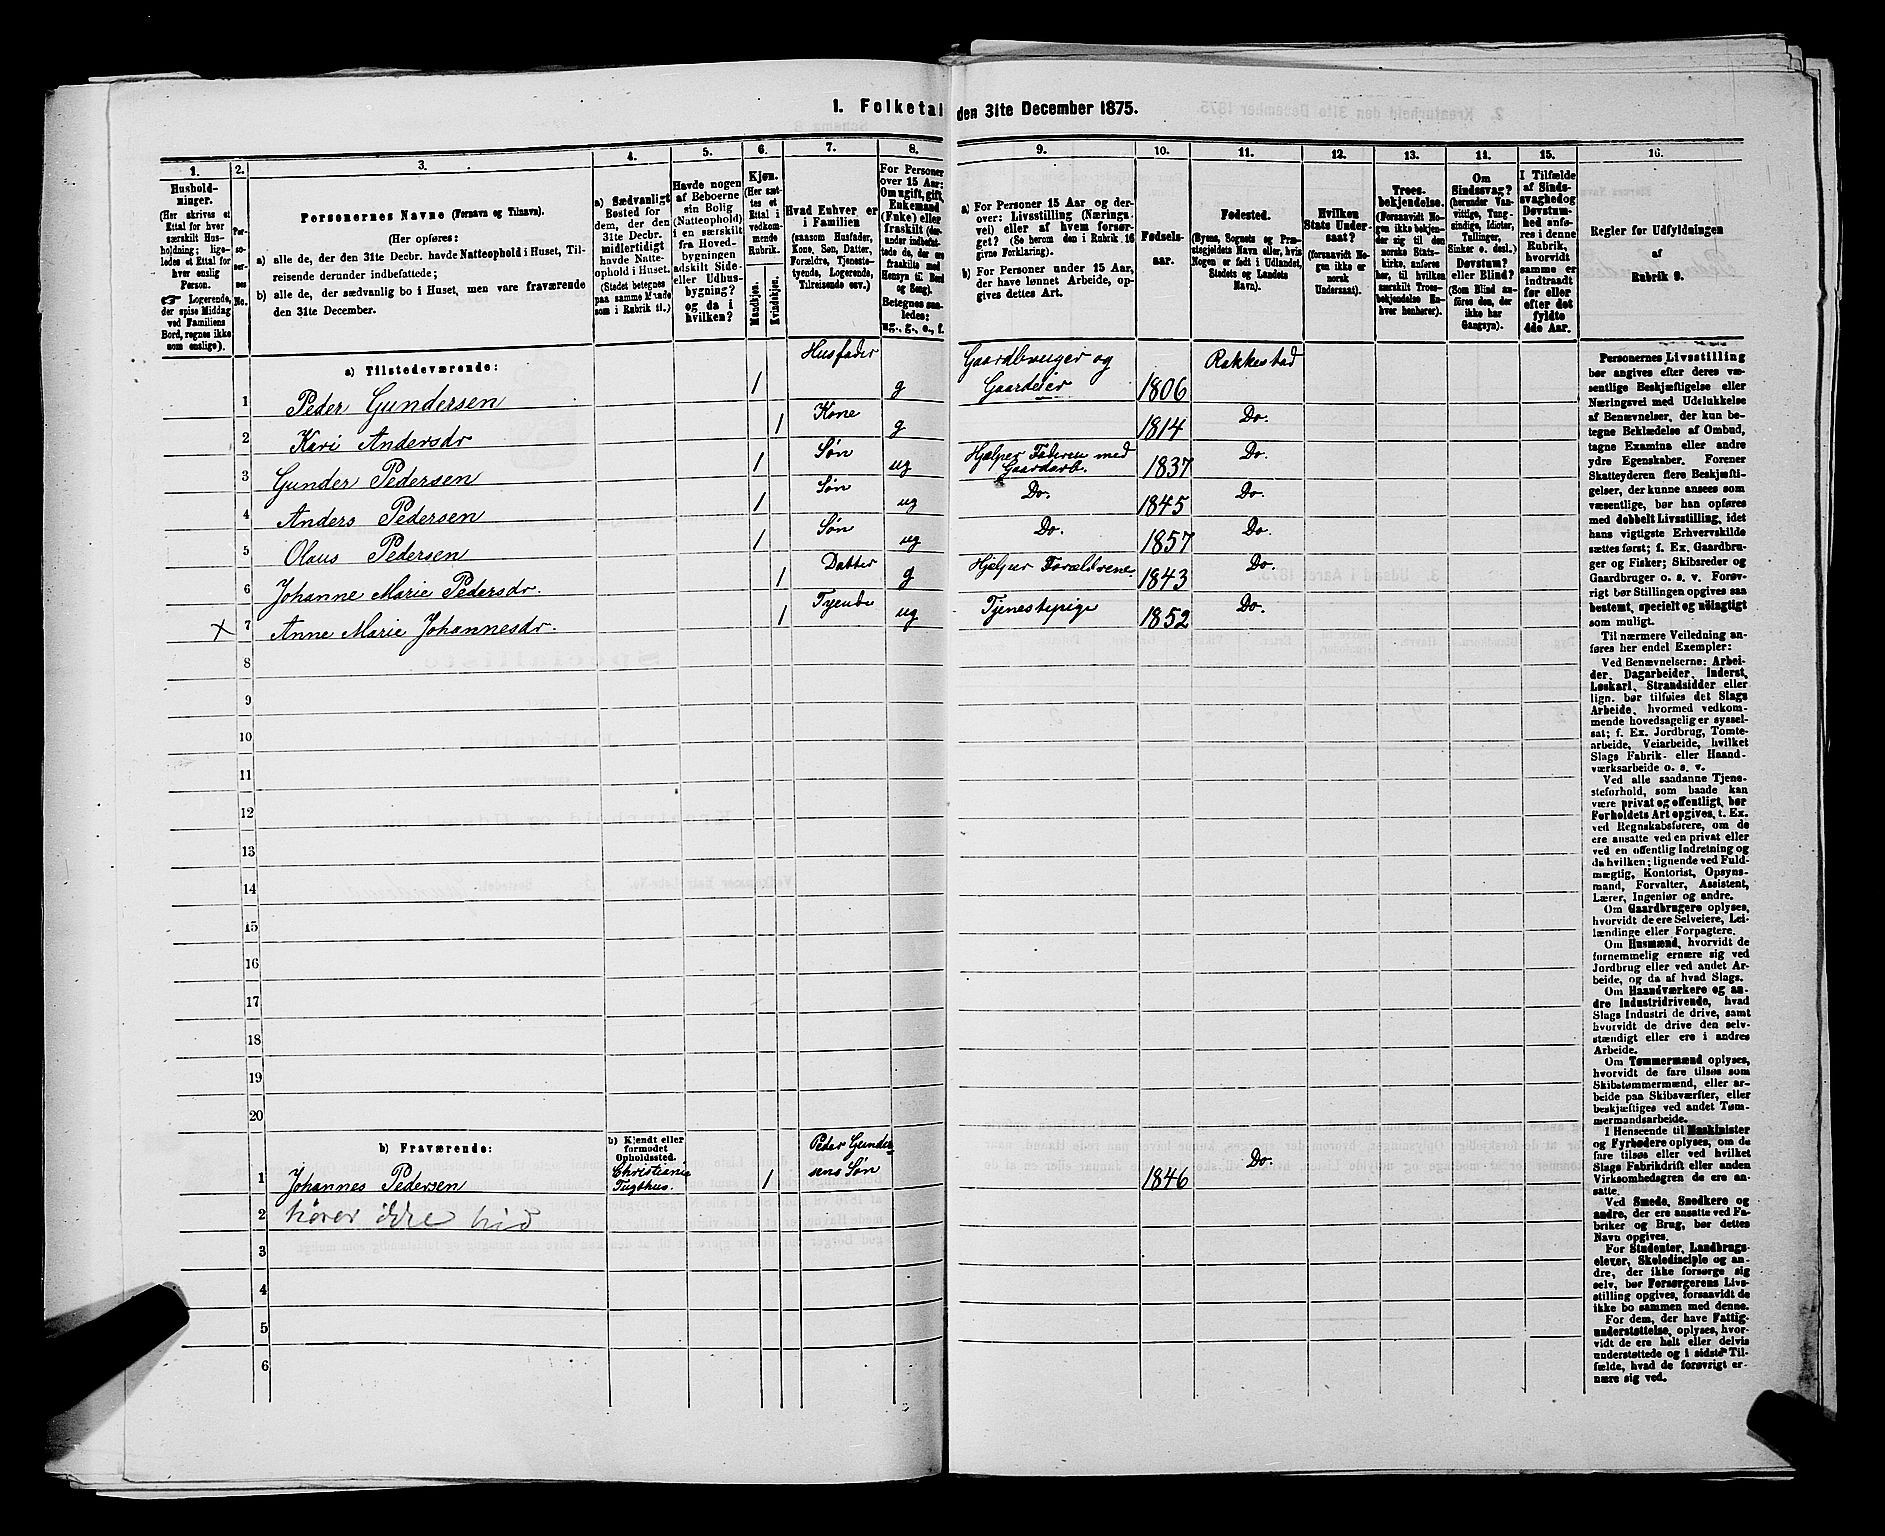 1. Folketal den 31te December 1875.
1.
2.
3.
4.
5.
6.
7.
8.
9.
10.
11.
12.
13.
14.
15.
16.
Hushold-
ninger.
(Her skrives et
Ettal for hver
særskilt Hus-
holdning; lige-
ledes et Ettal for
hver enslig
Person.
☞ Logerende,
der spise Middag
ved Familiens
Bord, regnes ikke
som enslige).
Per-
so-
ner-
nes
No.
Personernes Navne (Fornavn og Tilnavn).
(Her opføres:
a) alle de, der den 31te Decbr. havde Natteophold i Huset, Til-
reisende derunder indbefattede;
b) alle de, der sædvanlig bo i Huset, men vare fraværende
den 31te December.
a) Sædvanligt
Bosted for
dem, der den
31te Decbr.
midlertidigt
havde Natte-
ophold i Huset.
(Stedet betegnes
paa samme Maade
som i Rubrik 11.)
Havde nogen
af Beboerne
sin Bolig
(Natteophold)
i en særskilt
fra Hoved-
bygningen
adskilt Side-
eller Udhus-
bygning?
og da i
hvilken?
Kjøn.
(Her sæt-
tes et
Ettal i
vedkom-
mende
Rubrik.
Mandkjøn.
Kvindekjøn.
Hvad Enhver er
i Familien
(saasom Husfader,
Kone, Søn, Datter,
Forældre, Tjeneste-
tyende, Logerende,
Tilreisende osv.)
For Personer
over 15 Aar:
Om ugift, gift,
Enkemand
(Enke) eller
fraskilt (der-
under indbefat-
tede de, der ere
fraskilte med
Hensyn til Bord
og Seng).
Betegnes saa-
ledes:
ug., g., e., f.
a) For Personer 15 Aar og der-
over: Livsstilling (Nærings-
vei) eller af hvem forsør-
get? (Se herom den i Rubrik 16
givne Forklaring).
b) For Personer under 15 Aar,
der have lønnet Arbeide, op-
gives dettes Art.
Fødsels-
aar.
Fødested.
(Byens, Sognets og Præ-
stegjeldets Navn eller, hvis
Nogen er født i Udlandet,
Stedets og Landets
Navn).
Hvilken
Stats Under-
saat?
(forsaavidt No-
gen ikke er
norsk
Undersaat).
Troes-
bekjendelse.
(Forsaavidt No-
gen ikke bekjen-
der sig til den
norske Stats-
kirke, anføres
her, til hvilken
særskilt Troes-
bekjendelse En-
hver henhører).
Om
Sindssvag?
(herunder Van-
vittige, Tung-
sindige, Idioter,
Tullinger,
Sinker o. desl.)
Døvstum?
eller Blind?
(Som Blind an-
føres den, der
ikke har
Gangsyn).
I Tilfælde
af Sinds-
svaghed og
Døvstum-
hed anfø-
res i denne
Rubrik,
hvorvidt
samme er
indtraadt
før eller
efter det
fyldte
4de Aar.
Regler for Udfyldningen
af
Rubrik 9.
a) Tilstedeværende:
1 Peder Gundersen 1 Husfader g Gaardbruger og Gaardeier 1806 Rakkestad
2 Kari Andersdr 1 Kone g 1814 Do.
3 Gunder Pedersen 1 Søn ug Hjælper Faderen med Gaardarb. 1837 Do.
4 Anders Pedersen 1 Søn ug Do. 1845 Do.
5 Olaus Pedersen 1 Søn ug Do. 1857 Do.
6 Johanne Marie Pedersdr. 1 Datter g Hjælper Forældrene 1843 Do.
x 7 Anne Marie Johannesdr. 1 Tyende ug Tjenestepige 1852 Do.
8
9
10
11
12
13
14
15
16
17
18
19
20
b) Fraværende:
b) Kjendt eller
formodet
Opholdssted.
1 Johannes Pedersen Christiania Tugthus. 1 Peder Gundersens Søn 1846 Do.
2 hører ikke hid
3
4
5
6
Personernes Livsstilling
bør angives efter deres væ-
sentlige Beskjæftigelse eller
Næringsvei med Udelukkelse
af Benævnelser, der kun be-
tegne Beklædelse af Ombud,
tagne Examina eller andre
ydre Egenskaber. Forener
Skatteyderen flere Beskjæfti-
gelser, der kunne ansees som
væsentlige, bør han opføres
med dobbelt Livsstilling, idet
hans vigtigste Erhvervskilde
sættes først; f. Ex. Gaardbru-
ger og Fisker; Skibsreder og
Gaardbruger o. s. v. Forøv-
rigt bør Stillingen opgives saa
bestemt, specielt og nøiagtigt
som muligt.
Til nærmere Veiledning an-
føres her endel Exempler:
Ved Benævnelserne: Arbei-
der, Dagarbeider, Inderst,
Løskarl, Strandsidder eller
lign. bør tilføies det Slags
Arbeide, hvormed vedkom-
mende hovedsagelig er syssel-
sat; f. Ex. Jordbrug, Tomte-
arbeide, Veiarbeide, hvilket
Slags Fabrik- eller Haand-
værksarbeide o. s. v.
Ved alle saadanne Tjene-
steforhold, som baade kan
være privat og offentligt, bør
Forholdets Art opgives, t. Ex.
ved Regnskabsførere, om de
ere ansatte ved en privat eller
ved en offentlig Indretning og
da hvilken; lignende ved Fuld-
mægtig, Kontorist, Opsyns-
mand, Forvalter, Assistent,
Lærer, Ingeniør og andre.
Om Gaardbrugere oplyses,
hvorvidt de ere Selveiere, Lei-
lændinge eller Forpagtere.
Om Husmænd, hvorvidt de
fornemmelig ernære sig ved
Jordbrug eller ved andet Ar-
beide, og da af hvad Slags.
Om Haandværkere og an-
dre Industridrivende, hvad
Slags Industri de drive, samt
hvorvidt de drive den selv-
stændigt eller ere i andres
Arbeide.
Om Tømmermænd oplyses,
hvorvidt de fare tilsøs som
Skibstømmermænd, eller ar-
beide paa Skibsværfter, eller
beskjæftiges ved andet Tøm-
mermandsarbeide.
I Henseende til Maskinister
og Fyrbødere oplyses, om de
fare tilsøs eller ved hvilket
Slags Fabrikdrift eller anden
Virksomhedsgren de ere an-
satte.
Ved Smede, Snedkere og
andre, der ere ansatte ved Fa-
briker og Brug, bør dettes
Navn opgives.
For Studenter, Landbrugs-
elever, Skoledisciple og an-
dre, der ikke forsørge sig
selv, bør Forsørgerens Livs-
stilling opgives, forsaavidt de
ikke bo sammen med denne.
For dem, der have Fattig-
understøttelse, oplyses, hvor-
vidt de ere helt eller delvis
understøttede og i sidste Til-
fælde, hvad de forøvrigt er-
nære sig ved.